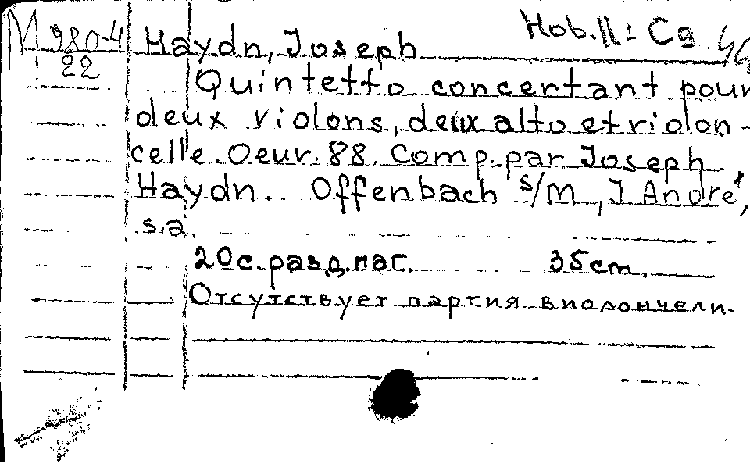 M 980-4
22
Hob.II: C9
Haydn, Joseph
Quintetto concertant pour
deux violons, deux alto et violon-
celle. Oeur. 88. Comp. par Joseph
Haydn. Offenbach s/M, J. André,
s.a.
20 с. разд. паг. 35 cm.
Отсутствует партия виолончели.